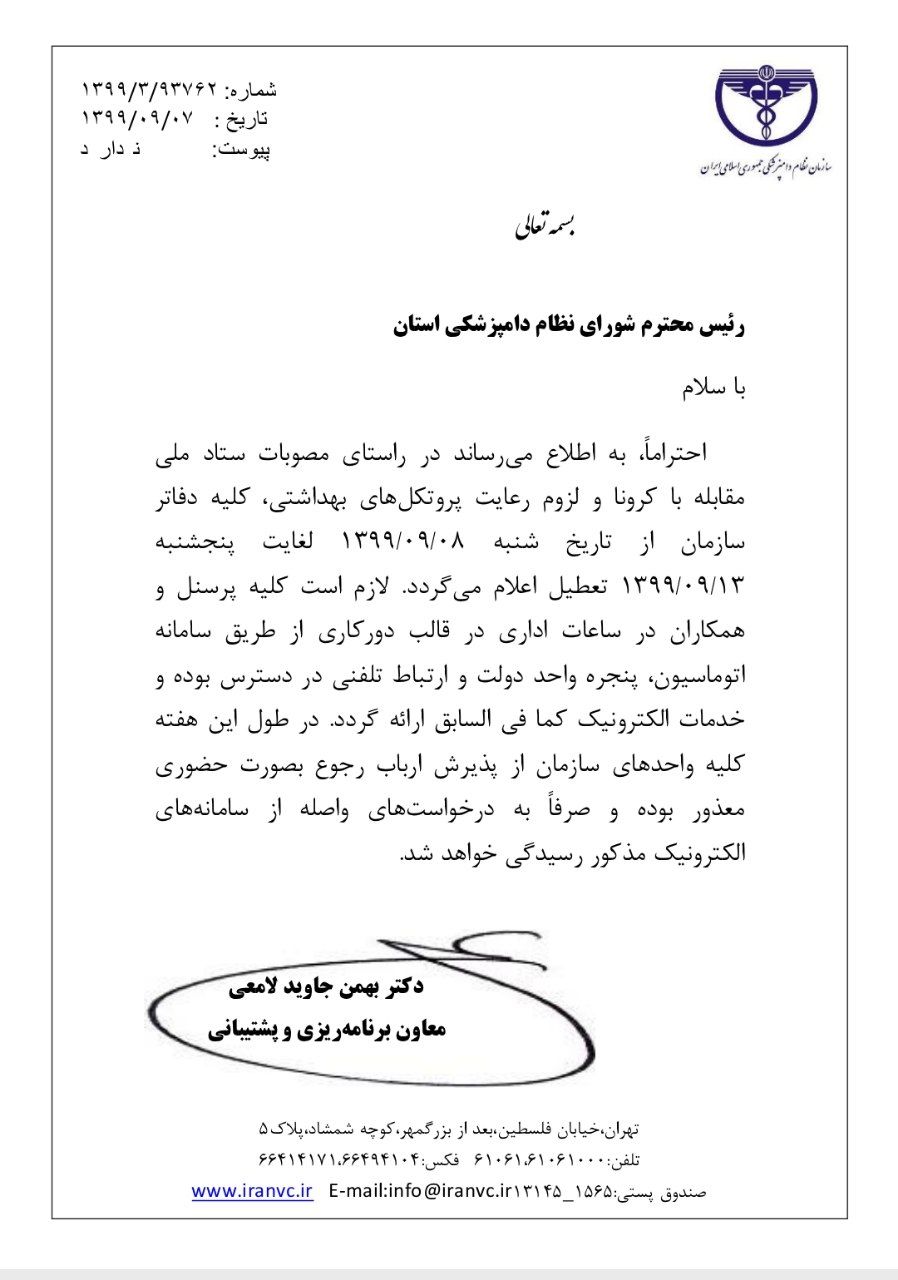 شماره: ۱۳۹۹/۳/۹۳۷۶۲
تاریخ : ۱۳۹۹/۰۹/۰۷
پیوست: ندارد
سازمان نظام دامپزشکی جمهوری اسلامی ایران
بسمه تعالی
رئیس محترم شورای نظام دامپزشکی استان
با سلام
احتراماً، به اطلاع می‌رساند در راستای مصوبات ستاد ملی
مقابله با کرونا و لزوم رعایت پروتکل‌های بهداشتی، کلیه دفاتر
سازمان از تاریخ شنبه ۱۳۹۹/۰۹/۰۸ لغایت پنجشنبه
۱۳۹۹/۰۹/۱۳ تعطیل اعلام می‌گردد. لازم است کلیه پرسنل و
همکاران در ساعات اداری در قالب دورکاری از طریق سامانه
اتوماسیون، پنجره واحد دولت و ارتباط تلفنی در دسترس بوده و
خدمات الکترونیک کما فی السابق ارائه گردد. در طول این هفته
کلیه واحدهای سازمان از پذیرش ارباب رجوع بصورت حضوری
معذور بوده و صرفاً به درخواست‌های واصله از سامانه‌های
الکترونیک مذکور رسیدگی خواهد شد.
دکتر بهمن جاوید لامعی
معاون برنامه‌ریزی و پشتیبانی
تهران،خیابان فلسطین،بعد از بزرگمهر،کوچه شمشاد،پلاک۵
تلفن:۶۱۰۶۱،۶۱۰۶۱۰۰۰ فکس:۶۶۴۱۴۱۷۱،۶۶۴۹۴۱۰۴
صندوق پستی:۱۵۶۵_۱۳۱۴۵ E-mail:info@iranvc.ir www.iranvc.ir